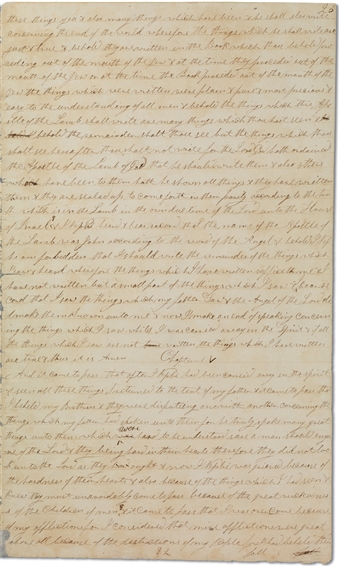 these things yea & also many things which hath been & he shall also write
concerning the end of the world wherefore the things which he shall write are
just & true & behold they are written in the Book which thou beheld pro
ceding out of the mouth of the Jew & at the time they proceded out of the
mouth of the Jew or at the time the Book proceded out of the mouth of the
Jew the things which were written were plain & pure & most precious &
easy to the understanding of all men & behold the things which this Apo
stle of the Lamb shall write are many things which thou hast seen &
behold the remainder shalt thou see but the things which thou
shalt see hereafter thou shalt not write for the Lord God hath ordained
the Apostle of the Lamb of God that he should write them & also others
which have been to them hath he shewn all things & they have written
them & they are sealed up to come forth in them purity according to the truth
which is in the Lamb in the own due time of the Lord unto the House
of Israel & I Nephi heard & bear record that the name of the Apostle of
the Lamb was John according to the word of the Angel & behold I Nephi
am forbidden that I should write the remainder of the things which I
saw & heard wherefore the things which I have written sufficeth me & I
have not written but a small part of the things which I saw & I bear re
cord that I saw the things which my father saw & the Angel of the Lord did
make them known unto me & now I make an end of speaking concern
ing the things which I saw while I was caried away in the spirit & if all
the things which I saw are not written the things which I have written
is true & thus it is Amen Chapter V
And it came to pass that after I Nephi had been caried away in the spirit
& seen all these things I returned to the tent of my father & it came to pass that
I beheld my Brethren & they were disputing one with another concerning the
things which my father had spoken unto them for he truly spake many great
things unto them which was hard to be understood save a man should enqu
ire of the Lord & they being hard in their hearts therefore they did not look
unto the Lord as they had ought & now I Nephi was grieved because of
the hardness of their hearts & also because of the things which I had seen &
knew they must unavoidably come to pass because of the great wickedness
of the Children of men & it came to pass that I was overcome because
of my afflictions for I considered that mine afflictions were great
above all because of the destructions of my people for I had beheld their
fall